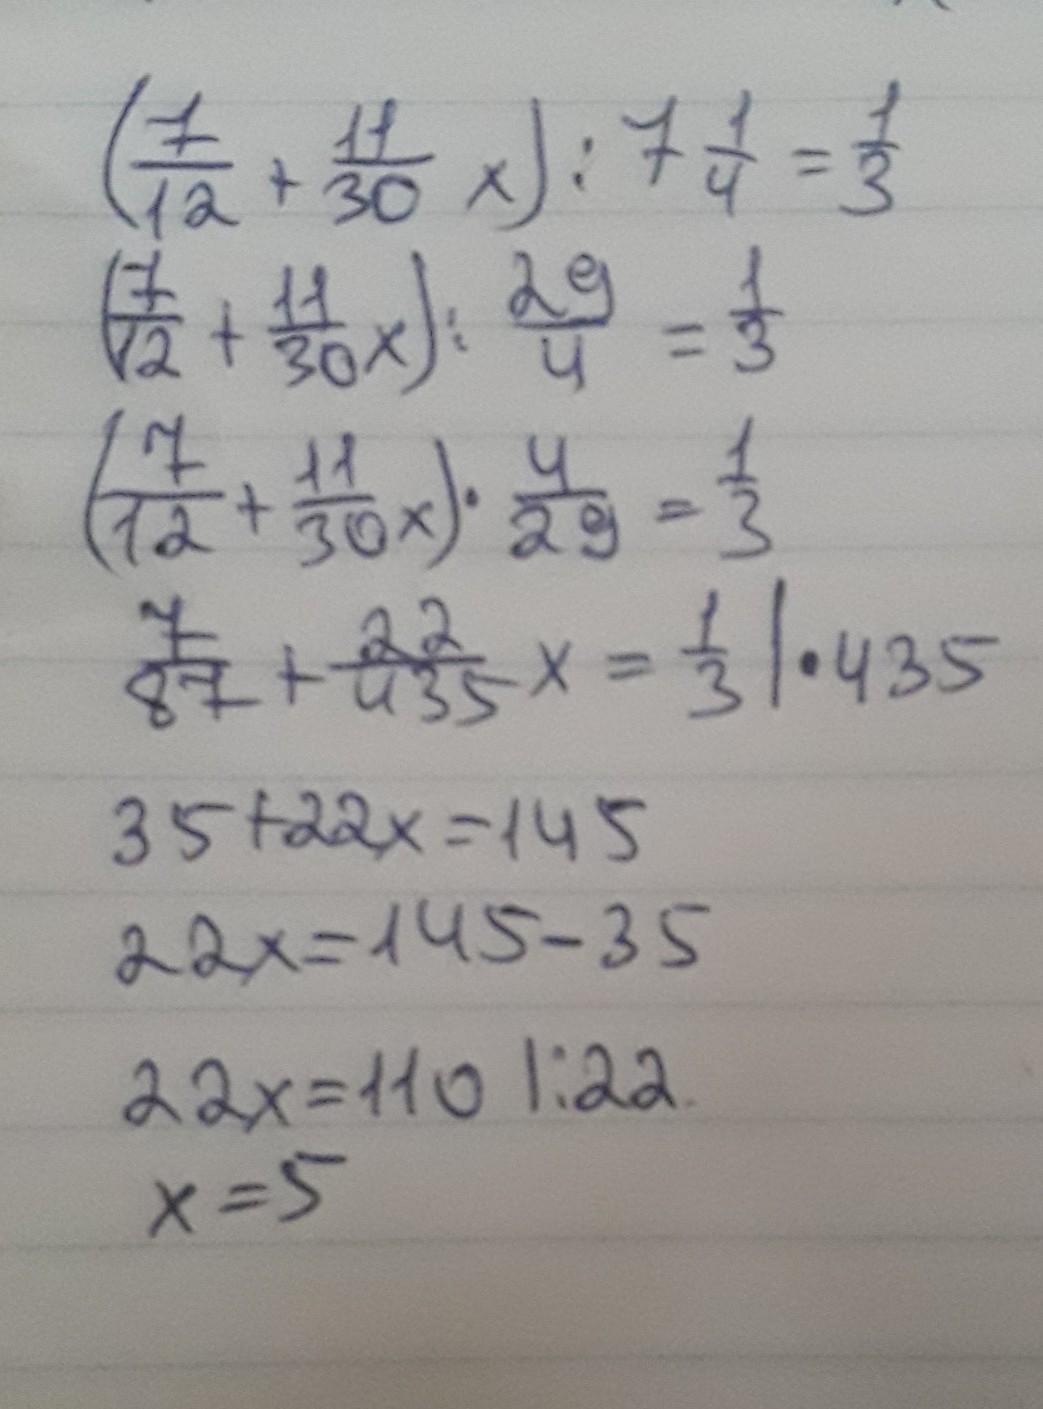 (7/12 + 11/30 x) : 7 1/4 = 1/3
(7/12 + 11/30 x) : 29/4 = 1/3
(7/12 + 11/30 x) · 4/29 = 1/3
7/87 + 22/435 x = 1/3 | · 435
35+22x=145
22x=145-35
22x=110 |:22
x=5